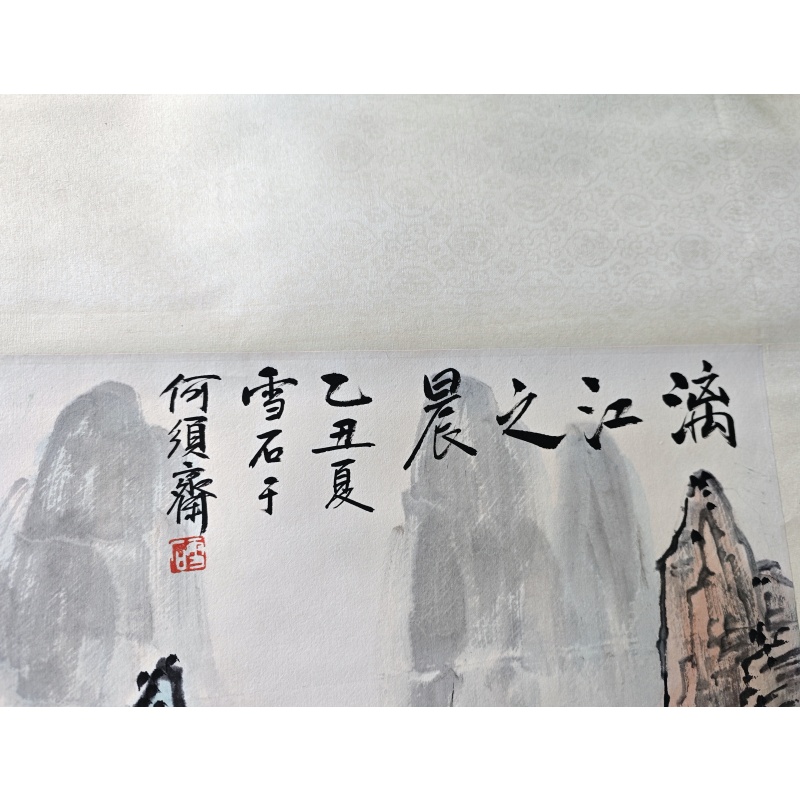 漓江之晨
乙丑夏
雪石于
何須齋
雪石